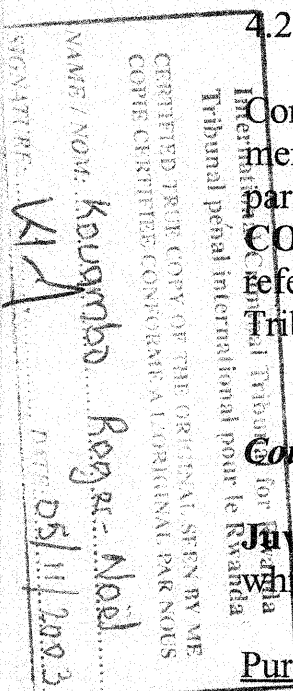 4.2
Con
mer
par
CO
refe
Trib
Cou
Juv
whi
Pur
International Criminal Tribunal for Rwanda
Tribunal pénal international pour le Rwanda
CERTIFIED TRUE COPY OF THE ORIGINAL SEEN BY ME
COPIE CERTIFIEE CONFORME A L'ORIGINAL PAR NOUS
NAME / NOM: Kouambo Roger-Noël
SIGNATURE: DATE: 05/11/2003